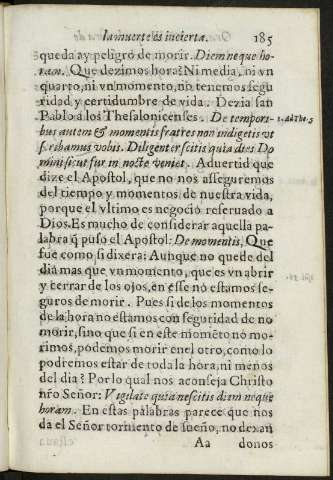 la muerte es incierta. 185
queda ay peligro de morir. Diem neque ho-
ram. Que dezimos hora? Ni media, ni vn
quarto, ni vn momento, no tenemos segu
ridad y certidumbre de vida. Dezia san
Pablo a los Thesalonicenses. De tempori-
bus autem & momentis fratres non indigetis vt
scribamus vobis. Diligenter scitis quia dies Do
mini sicut fur in nocte veniet. Aduertid que
dize el Apostol, que no nos asseguremos
del tiempo y momentos de nuestra vida,
porque el vltimo es negocio reseruado a
Dios. Es mucho de considerar aquella pa-
labra q̃ puso el Apostol: De momentis, Que
fue como si dixera: Aunque no quede del
dia mas que vn momento, que es vn abrir
y cerrar de los ojos, en esse nò estamos se-
guros de morir. Pues si de los momentos
de la hora no estamos con seguridad de no
morir, sino que si en este momẽto nò mo-
rimos, podemos morir en el otro, como lo
podremos estar de toda la hora, ni menos
del dia? Por lo qual nos aconseja Christo
nr̃o Señor: Vigilate quia nescitis diem neque
horam. En estas palabras parece que nos
da el Señor tormento de sueño, no dexan
Aa donos
1. ad The. 5